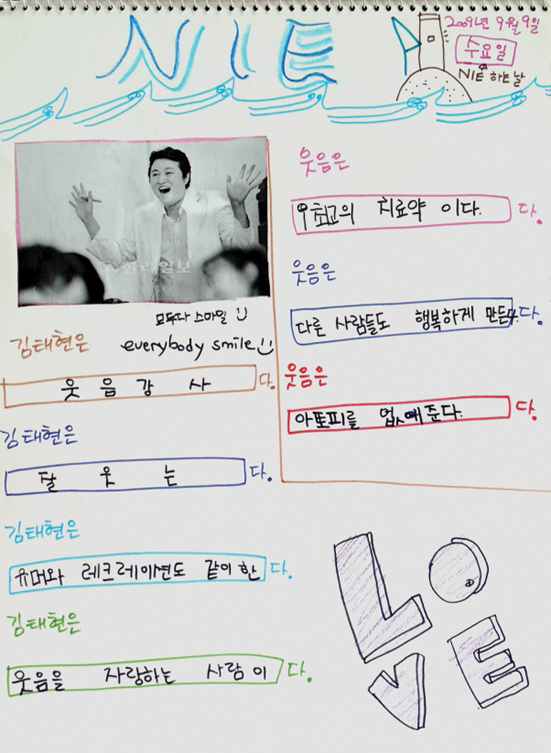 NIE
2009년 9월 9일
수요일
NIE 하는 날
모두다 스마일
everybody smile
김태현은
웃음강사 다.
김태현은
잘 웃는 다.
김태현은
유머와 레크레이션도 같이 한 다.
김태현은
웃음을 자랑하는 사람이 다.
웃음은
최고의 치료약 이다. 다.
웃음은
다른 사람들도 행복하게 만든다. 다.
웃음은
아토피를 업애준다. 다.
LOVE